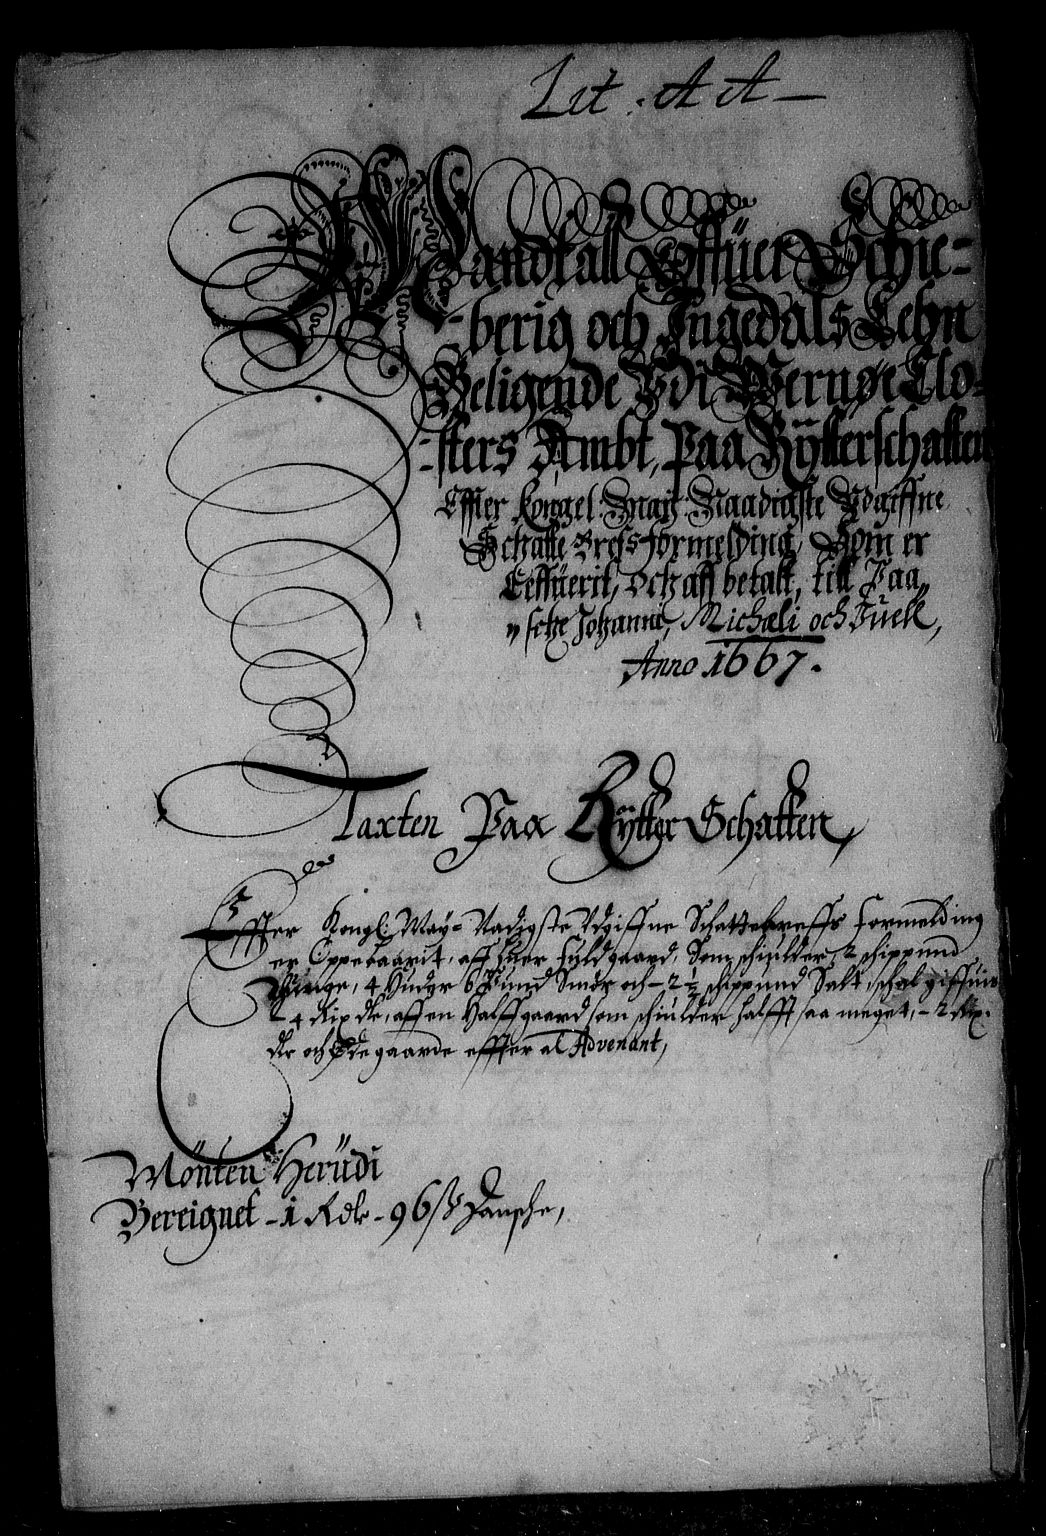 Lit. A A
Mandtall Offuer Schie-
-berig och Ingedals Lehn
Beligende Vdi Wernøe Clo-
-sters Ambt, Paa Rÿtterschatten
Effter Kongel: May: Naadigste Vdgiffne
Schatte Brefs formelding, Som er
Leffüerit, och aff betalt, till Paa
sche Johanni, Michæli och Juell,
Anno 1667.
Taxten Paa Rÿtter Schatten,
Effter Kongl: May= Nadigste Vdgiffne Schattebreffs Formelding
er Oppebaarit, aff huer fuldgaard, Som schiulder 2 schippund
Tunge, 4 Huder 6 Pund Smør och - 2 ½ schippund Salt, schal giffuis
4 Rix dr, aff en Halffgaard som schiulder halfft saa meget, - 2 Rix-
dr och Ødegaarde effter al Advenant,
Mønten Herüdi
Bereignet - 1 Rdr - 96 ß Dansche,